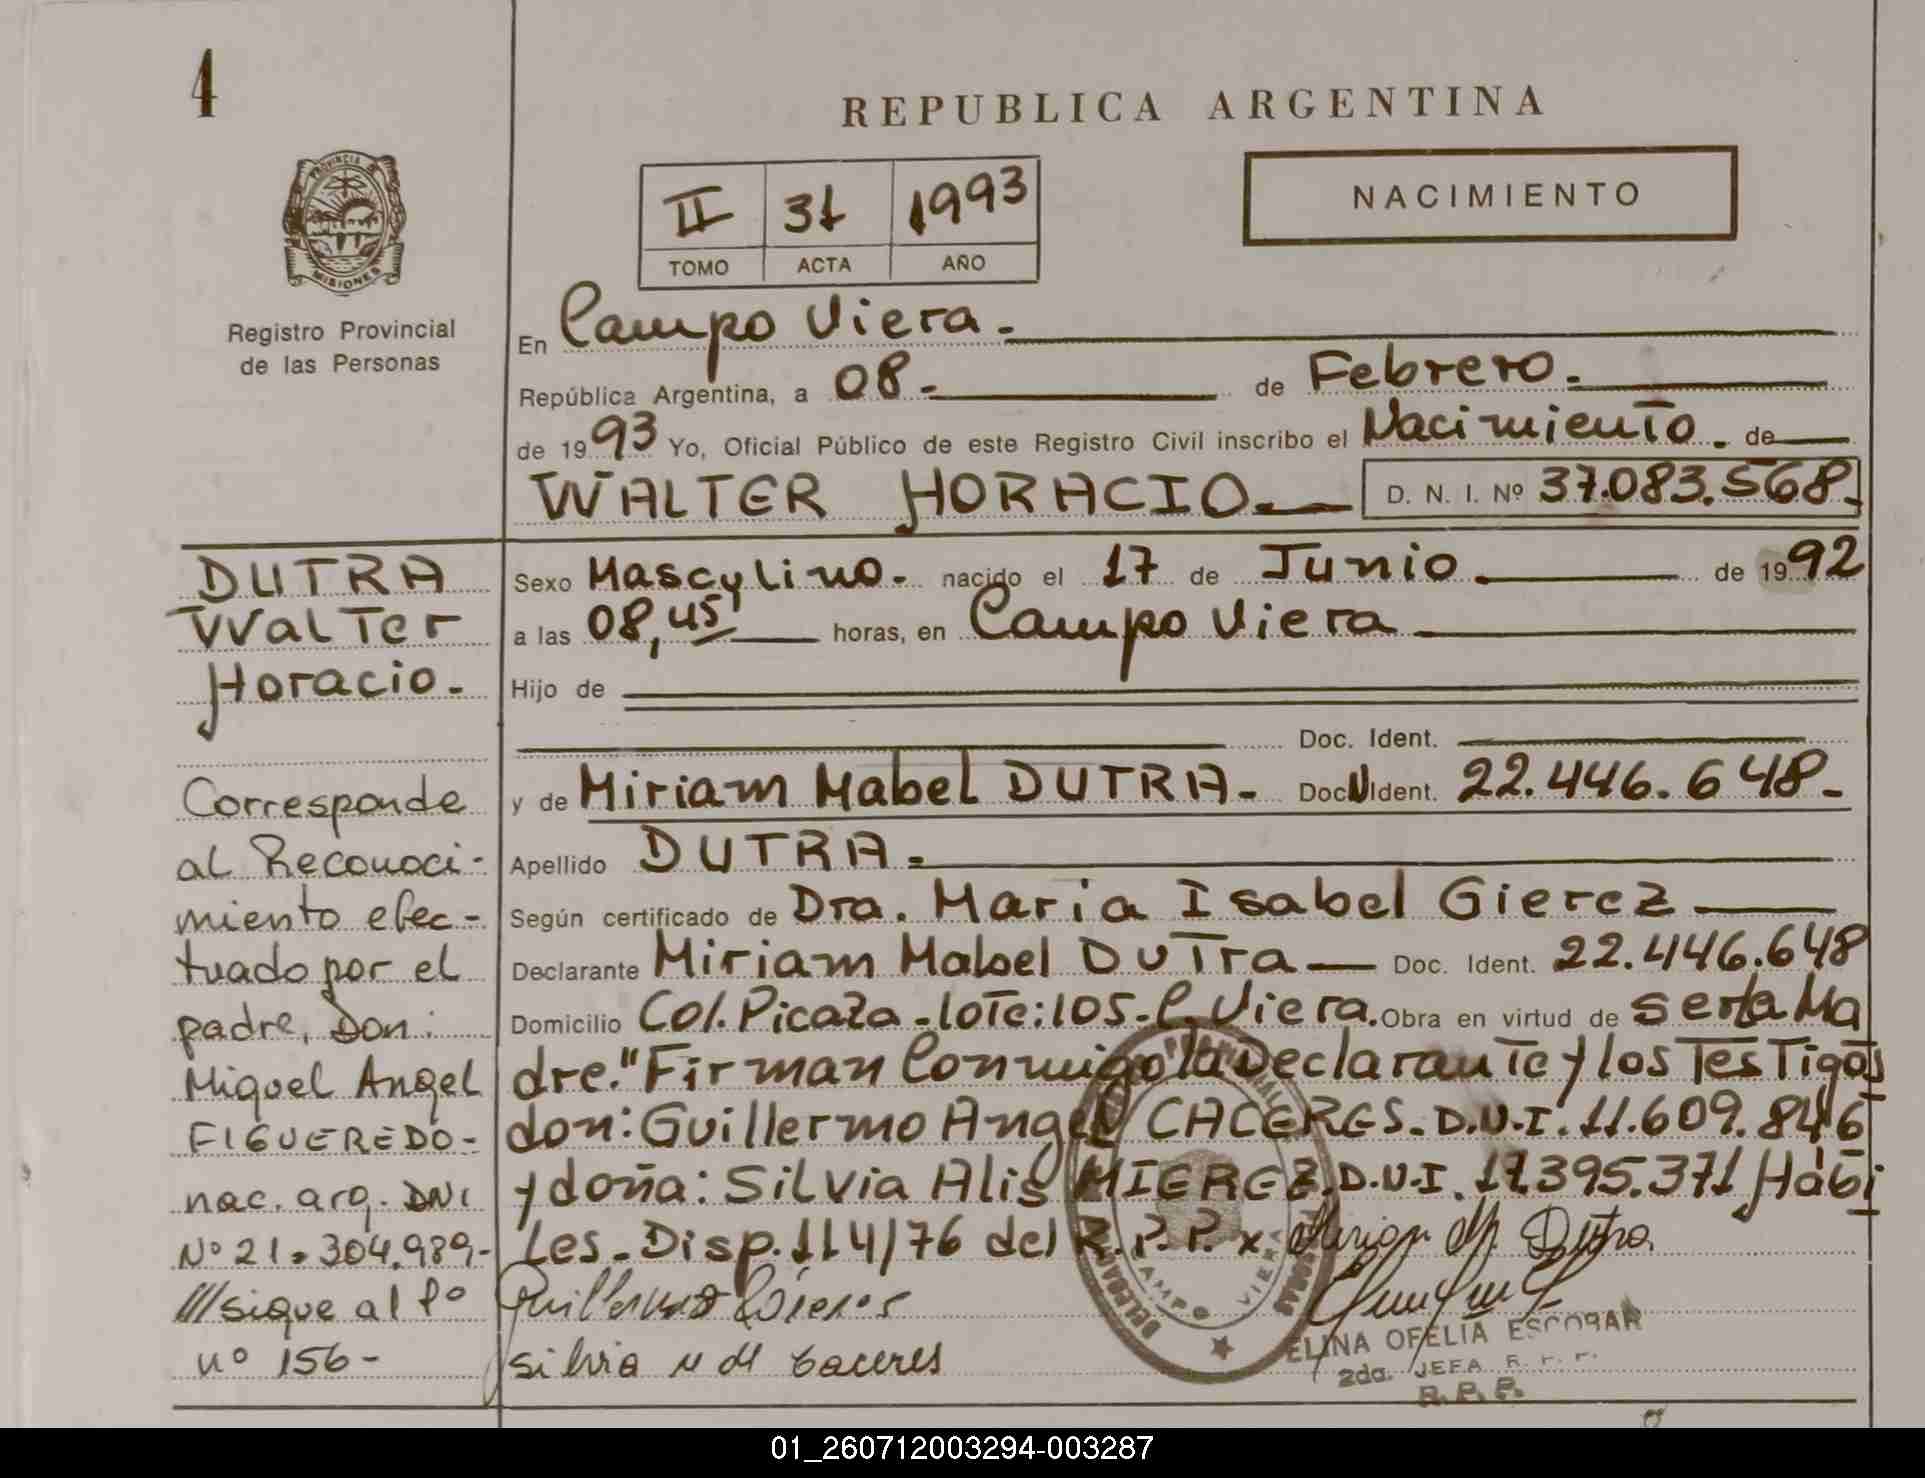 4
REPUBLICA ARGENTINA
PROVINCIA DE
MISIONES
II 31 1993
TOMO ACTA AÑO
NACIMIENTO
Registro Provincial
de las Personas
En Campo Viera.
República Argentina, a 08.- de Febrero.
de 1993 Yo, Oficial Público de este Registro Civil inscribo el Nacimiento. de
WALTER HORACIO. D. N. I. Nº 37.083.568.
DUTRA
Walter
Horacio.
Sexo Masculino. nacido el 17 de Junio. de 1992
a las 08,45 horas, en Campo Viera
Hijo de
Doc. Ident.
y de Miriam Mabel DUTRA. Doc.N Ident. 22.446.648.
Apellido DUTRA.
Según certificado de Dra. Maria Isabel Gierez
Declarante Miriam Mabel Dutra Doc. Ident. 22.446.648
Domicilio Col. Picaza - lote: 105 - C. Viera. Obra en virtud de ser la Ma
dre." Firman Conmigo la Declarante y los Testigos
don: Guillermo Angel CACERES. D.N.I. 11.609.846
y doña: Silvia Alis MIEREZ. D.N.I. 17.395.371 Hábi
les. Disp. 114/76 del R.P.P. x Mirian M. Dutra.
Guillermo Cáceres
silvia M de Caceres
Corresponde
al Reconoci-
miento efec-
tuado por el
padre, Don:
Miguel Angel
FIGUEREDO-
nac. arg. DNI
Nº 21.304.989-
/// sigue al fº
nº 156-
CAMPO VIERA
ELINA OFELIA ESCOBAR
2da. JEFA
R.P.P.
01_260712003294-003287